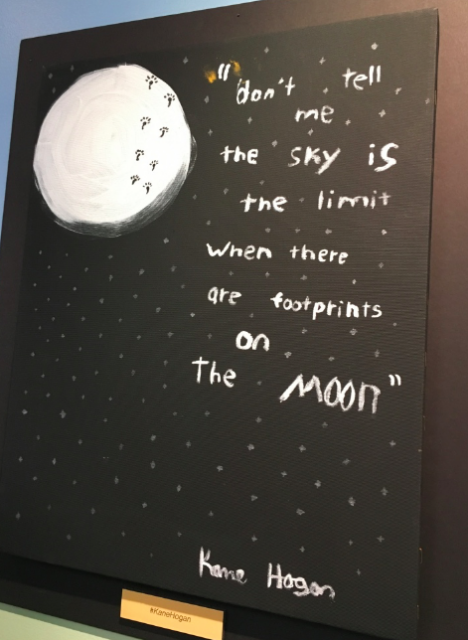 "don't tell
me
the sky is
the limit
when there
are footprints
on
The MOON"
Kane Hogan
#KaneHogan